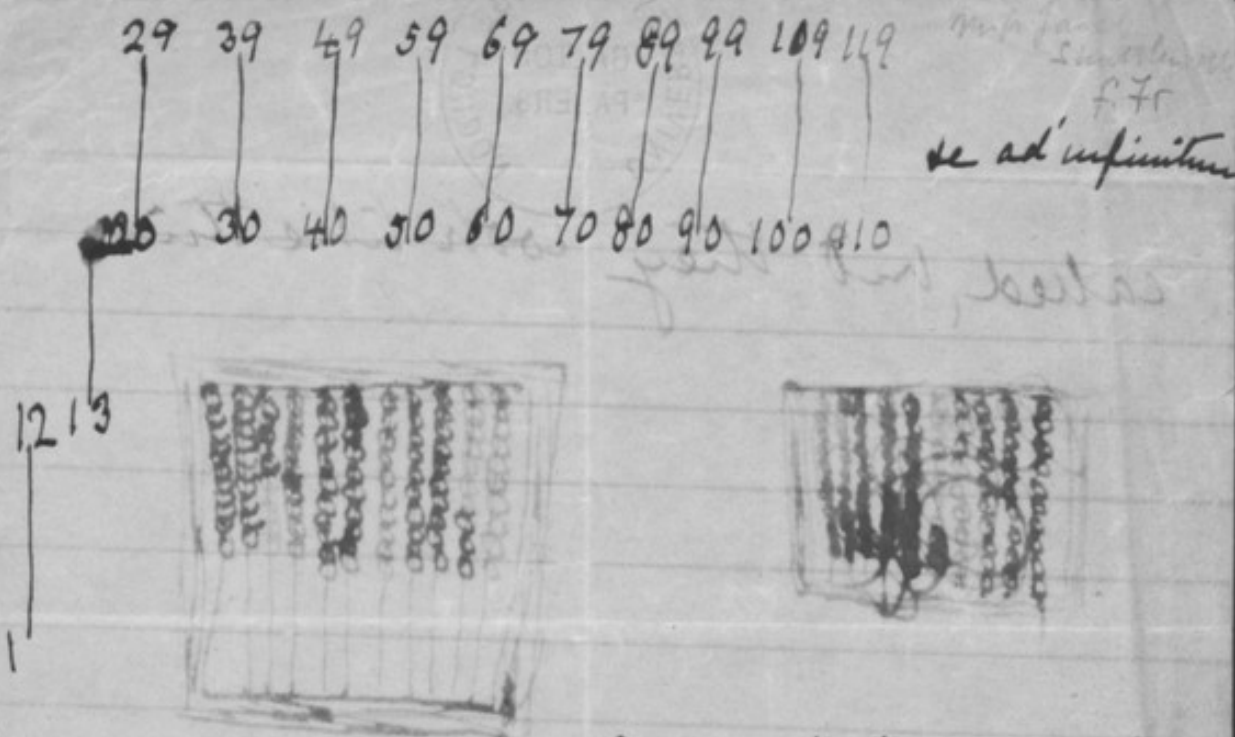 29 39 49 59 69 79 89 99 109 119
f. 7r
ad infinitum
20 30 40 50 60 70 80 90 100 110
12 13
1